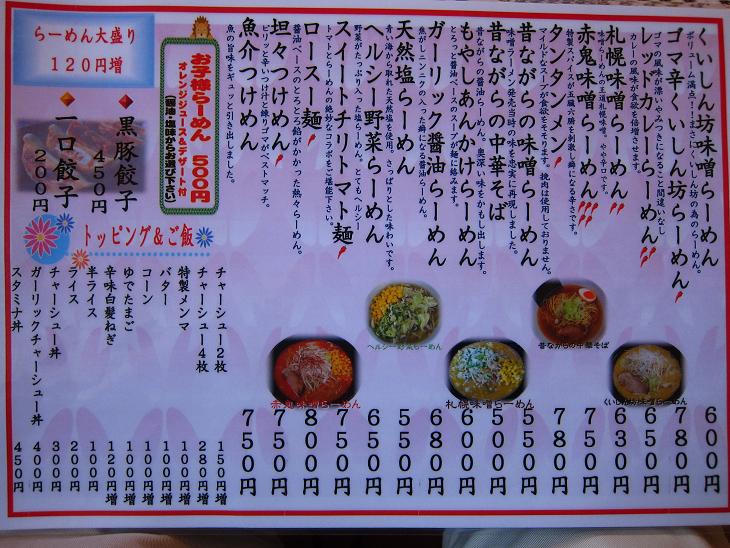 くいしん坊味噌らーめん 600円
ボリューム満点!!まさにくいしん坊の為のらーめん。
ゴマ辛くいしん坊らーめん 780円
ゴマの風味が漂いやみつきになること間違いなし
レッドカレーらーめん 650円
カレーの風味が食欲を倍増させます。
札幌味噌らーめん 630円
味噌らーめんの王道札幌味噌。やや辛口です。
赤鬼味噌らーめん 750円
特製スパイスが五臓六腑を刺激し癖になる辛さです。
タンタンメン 780円
マイルドなスープが食欲をそそります。挽肉は使用しておりません。
昔ながらの味噌らーめん 550円
味噌ラーメン発売当時の味を忠実に再現しました。
昔ながらの中華そば 500円
昔ながらの醤油らーめん。奥深い味をかもし出します。
もやしあんかけらーめん 650円
とろっと醤油ベースのスープが麺に絡みます。
ガーリック醤油らーめん 680円
焦がしニンニクの入った癖になる醤油らーめん。
天然塩らーめん 550円
青い海から取れた天然塩を使用。さっぱりとした味わいです。
ヘルシー野菜らーめん 650円
野菜がたっぷり入った塩らーめん。とてもヘルシー
スイートチリトマト麺 750円
トマトとらーめんの絶妙なコラボをご堪能下さい。
ロースー麺 800円
醤油ベースのとろとろ餡がかかった熱々らーめん。
坦々つけめん 750円
ピリッと辛いつけ汁と練りゴマがベストマッチ。
魚介つけめん 750円
魚の旨味をギュッと引き出しました。
くいしん坊味噌らーめん
昔ながらの中華そば
札幌味噌らーめん
ヘルシー野菜らーめん
赤鬼味噌らーめん
お子様らーめん 500円
オレンジジュース&デザート付
(醤油・塩味からお選び下さい)
らーめん大盛り
120円増
黒豚餃子 450円
一口餃子 200円
トッピング&ご飯
チャーシュー2枚 150円増
チャーシュー4枚 280円増
特製メンマ 100円増
バター 100円増
コーン 100円増
ゆでたまご 100円増
辛味白髪ねぎ 120円増
半ライス 100円
ライス 200円
チャーシュー丼 300円
ガーリックチャーシュー丼 400円
スタミナ丼 450円